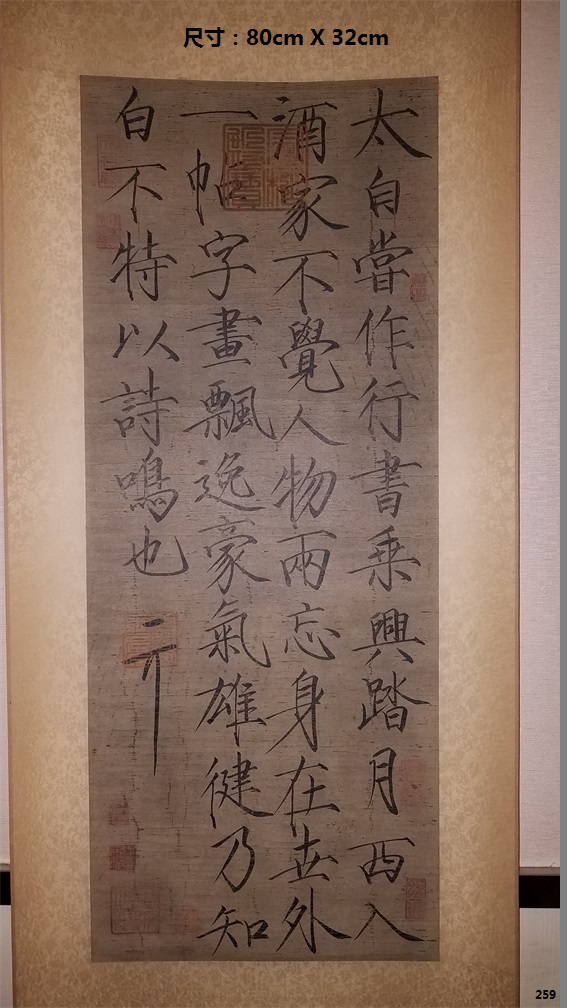 尺寸：80cm X 32cm
太白嘗作行書乗興踏月西入
酒家不覺人物兩忘身在世外
一帖字畫飄逸豪氣雄健乃知
白不特以詩鳴也
259